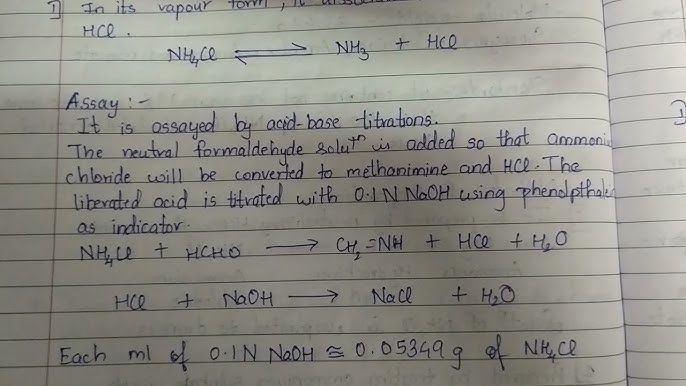 1] In its vapour form, it
HCl.
NH₄Cl ⇌ NH₃ + HCl
Assay :-
It is assayed by acid-base titrations.
The neutral formaldehyde soluᵗⁿ is added so that ammoni
chloride will be converted to methanimine and HCl. The
liberated acid is titrated with 0.1 N NaOH using phenolpthale
as indicator.
NH₄Cl + HCHO ⟶ CH₂=NH + HCl + H₂O
HCl + NaOH ⟶ NaCl + H₂O
Each ml of 0.1 N NaOH ≅ 0.05349 g of NH₄Cl
1)